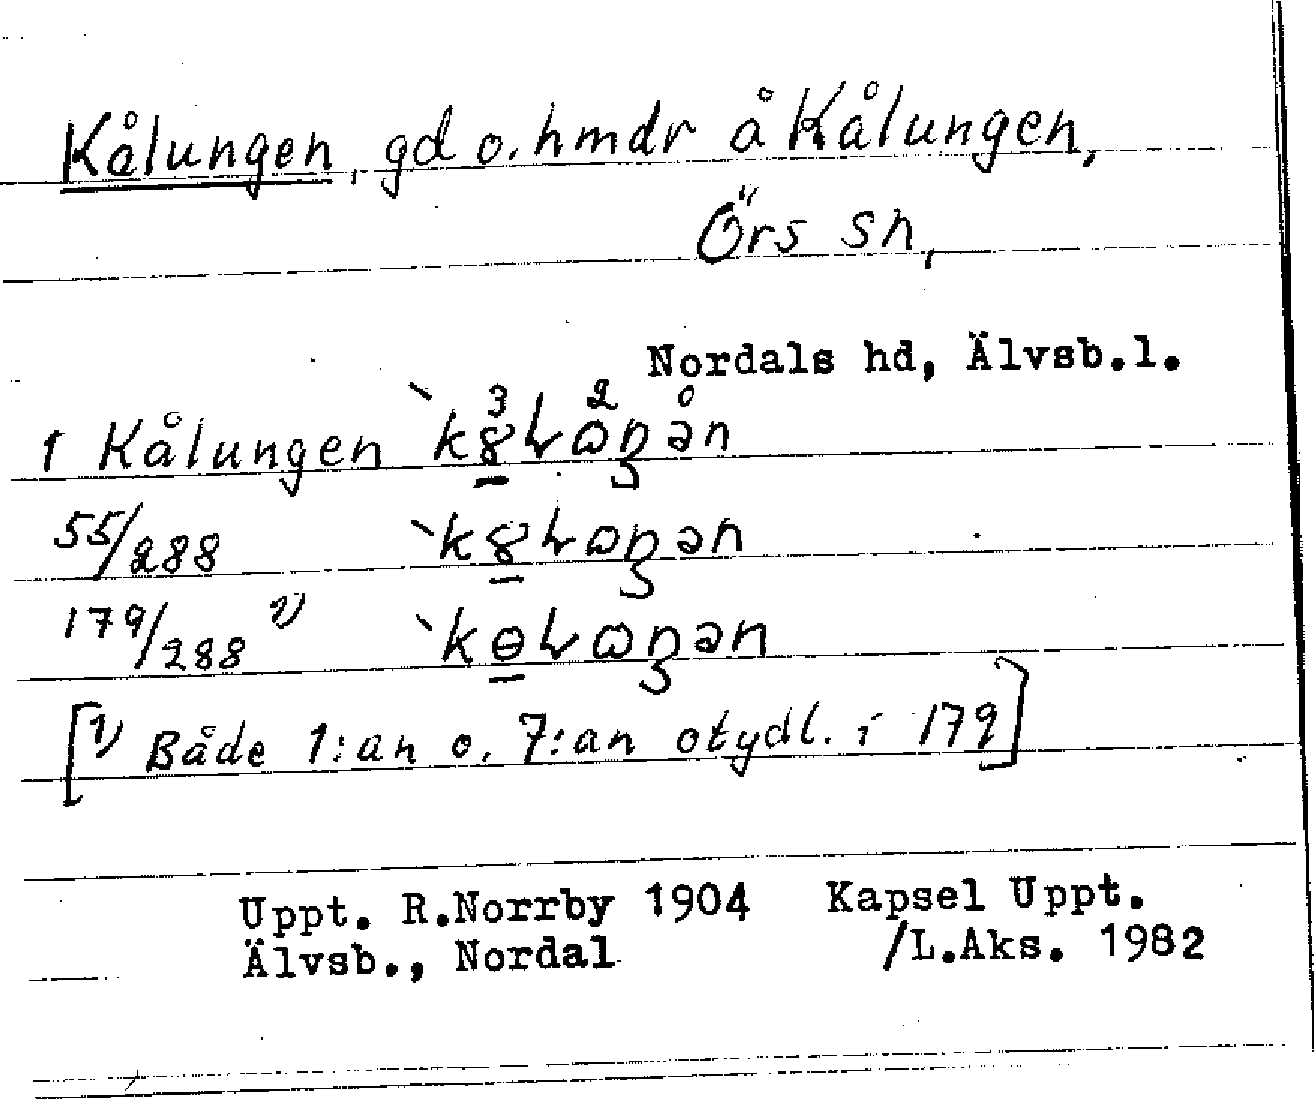 Kålungen, gd o. hmdr å Kålungen,
Örs sn,
Nordals hd, Älvsb.l.
1 Kålungen
55/288
179/288 1)
[1) Både 1:an o. 7:an otydl. i 179]
Uppt. R.Norrby 1904 Kapsel Uppt.
Älvsb., Nordal /L.Aks. 1982